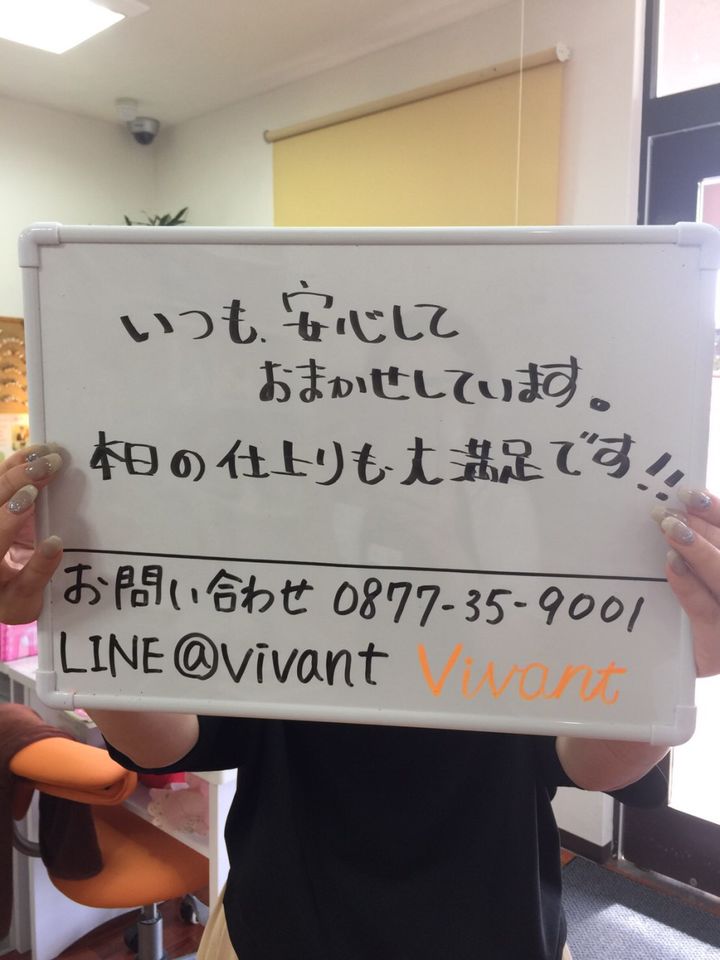 いつも、安心して
おまかせしています。
本日の仕上りも大満足です!!
お問い合わせ 0877-35-9001
LINE@vivant Vivant